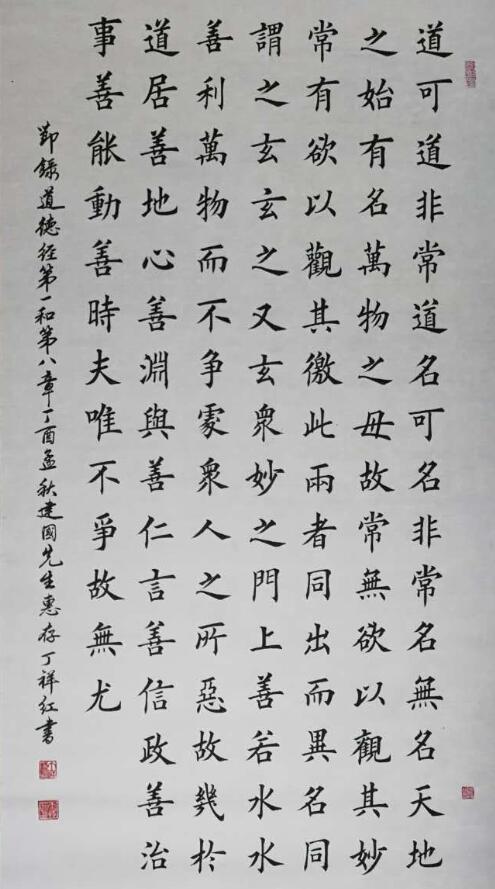 道可道非常道名可名非常名無名天地
之始有名萬物之母故常無欲以觀其妙
常有欲以觀其徼此兩者同出而異名同
謂之玄玄之又玄衆妙之門上善若水水
善利萬物而不争處衆人之所惡故幾扵
道居善地心善淵與善仁言善信政善治
事善能動善時夫唯不爭故無尤
節錄道德经第一和第八章丁酉孟秋建國先生惠存丁祥红書